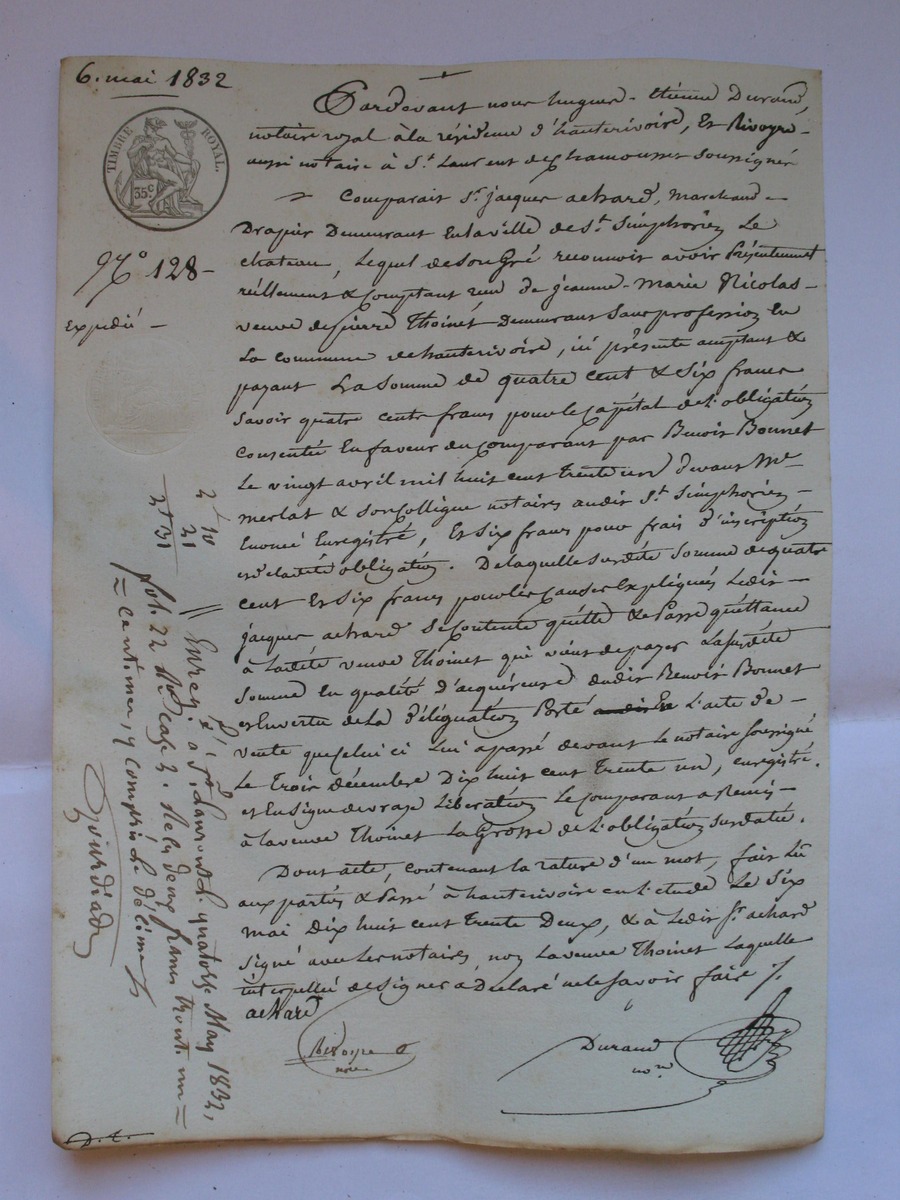 6. mai 1832
TIMBRE ROYAL.
35 c.
N° 128 -
Expédié -
Pardevant nous hugues - Etienne Durand,
notaire royal à la résidence d'hauterivoire, Et Rivoyre
aussi notaire à St. Laurent de Chamousset soussignés
Comparait Sr. jacques achard, marchand -
Drapier Demeurant En la ville de St. Simphorien Le
chateau, lequel de son Gré reconnoit avoir Présentement
réellement & Comptant reçu de jeanne - Marie Nicolas -
veuve de pierre Thoinet Demeurant Sans profession En
La commune de hauterivoire, ici présente acceptant &
payant La Somme de quatre cent & Six francs
Savoir quatre cents francs pour le Capital de l'obligation
Consentie En faveur du Comparant par Benoit Bonnet
Le vingt avril mil huit cent trente un devant Me
merlat & son Collègue notaires audit St. Simphorien -
Enoncé Enregistré, Et Six francs pour frais d'inscription
de ladite obligation. De laquelle Susdite Somme de quatre
cent Et Six francs pour les Causes Expliquées Ledit -
jacques achard Se Contente quitte & Passe quittance
à Ladite veuve Thoinet qui vient de payer La susdite
Somme En qualité d'acquéreuse dudit Benoit Bonnet
et En vertu de La Délégation Porté En L'acte de -
vente que Celui ci Lui a passé devant le notaire Soussigné
Le Trois décembre Dix huit cent trente un, enregistré.
et En Signe de vraye Libération Le Comparant a Remis -
à la veuve Thoinet La Grosse de L'obligation Susdatée.
Dont acte, Contenant la rature d'un mot, fait Lu
aux parties & Passé à hauterivoire en l'étude Le Six
mai Dix huit cent trente Deux, & à Ledit Sr. achard
Signé avec Les notaires, non La veuve Thoinet Laquelle
interpellée de Signer à Déclaré ne le Savoir faire
achard
Rivoyre
nore
Durand
nore
2 f 10
21
2 f 31
Enreg. é à St. Laurent L. quatorze May 1832,
fol. 22 Vo Case 2. Reçu deux francs trente un =
= Centimes, y compris le décime